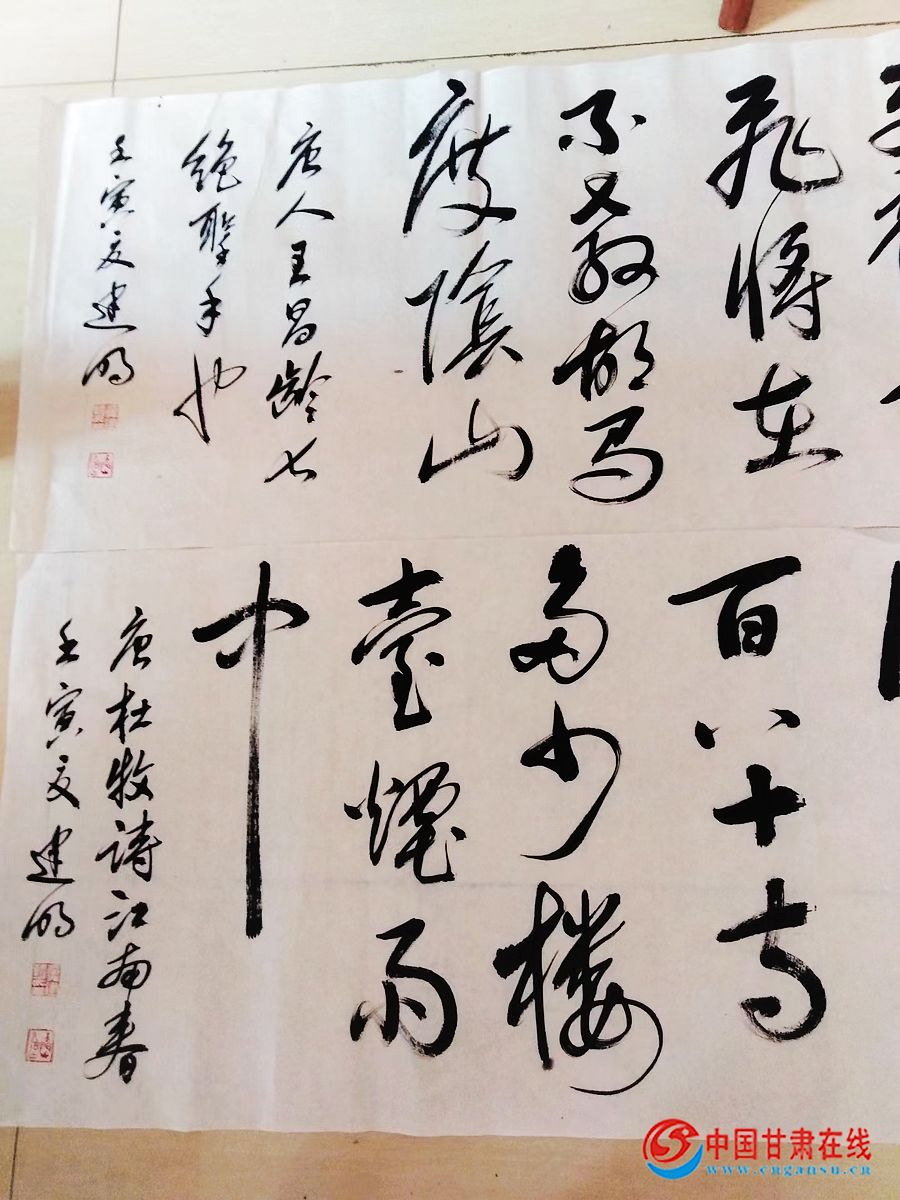 飛將在
不教胡马
度陰山
唐人王昌齡七
絶聖手也
壬寅夏建明
百八十寺
多少楼
臺煙雨
中
唐杜牧詩江南春
壬寅夏建明
中国甘肃在线
www.cngansu.cn